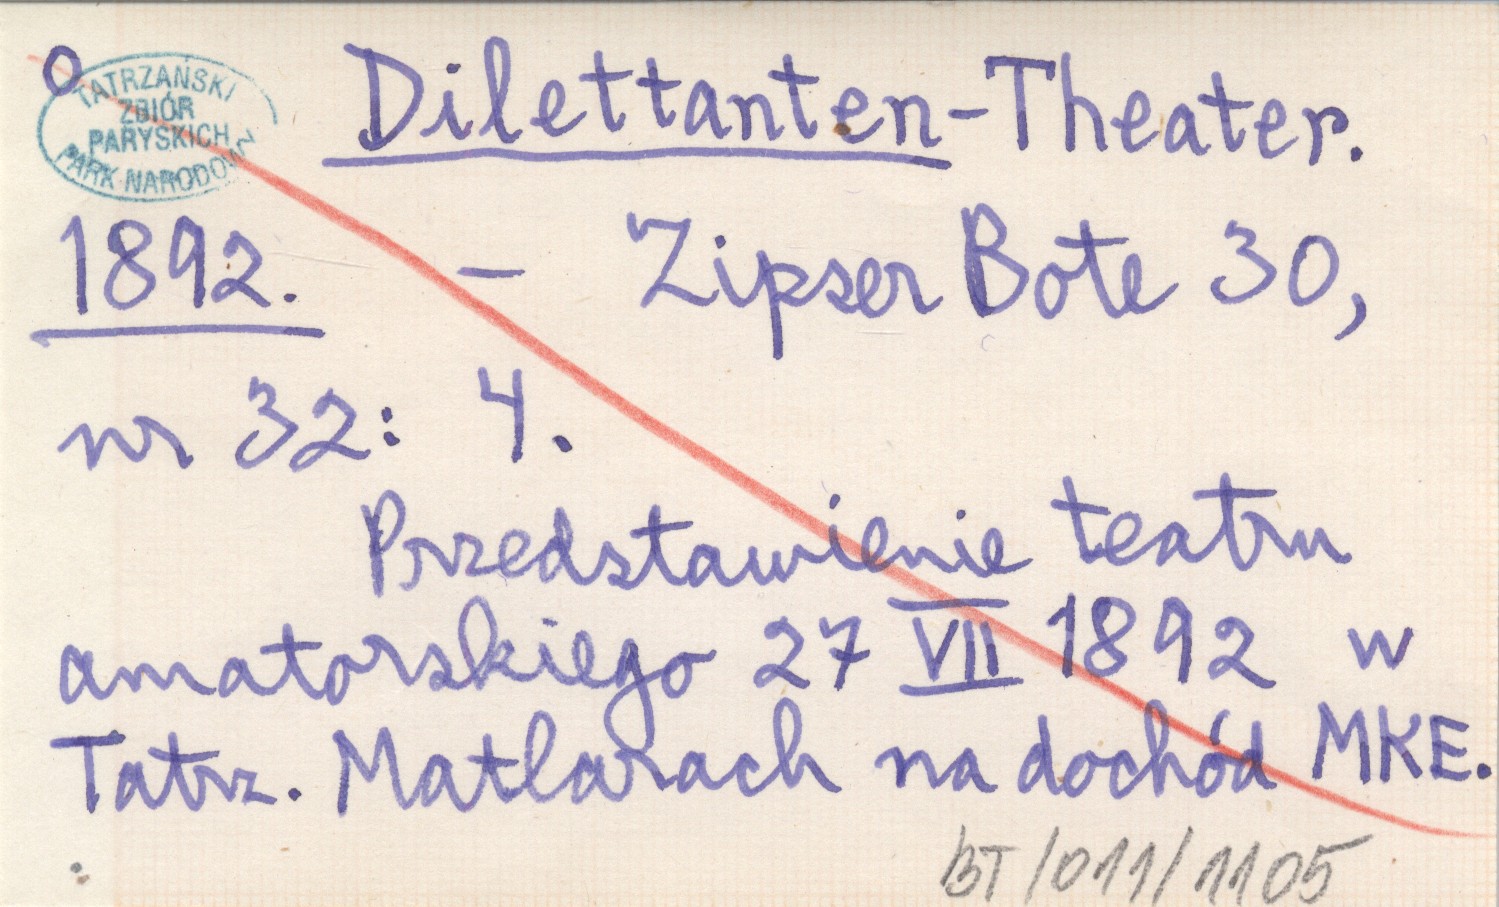 O
TATRZAŃSKI
ZBIÓR
PARYSKICH
PARK NARODOWY
Dilettanten-Theater.
1892. – Zipser Bote 30,
nr 32: 4.
Przedstawienie teatru
amatorskiego 27 VII 1892 w
Tatrz. Matlarach na dochód MKE.
BT/011/1105